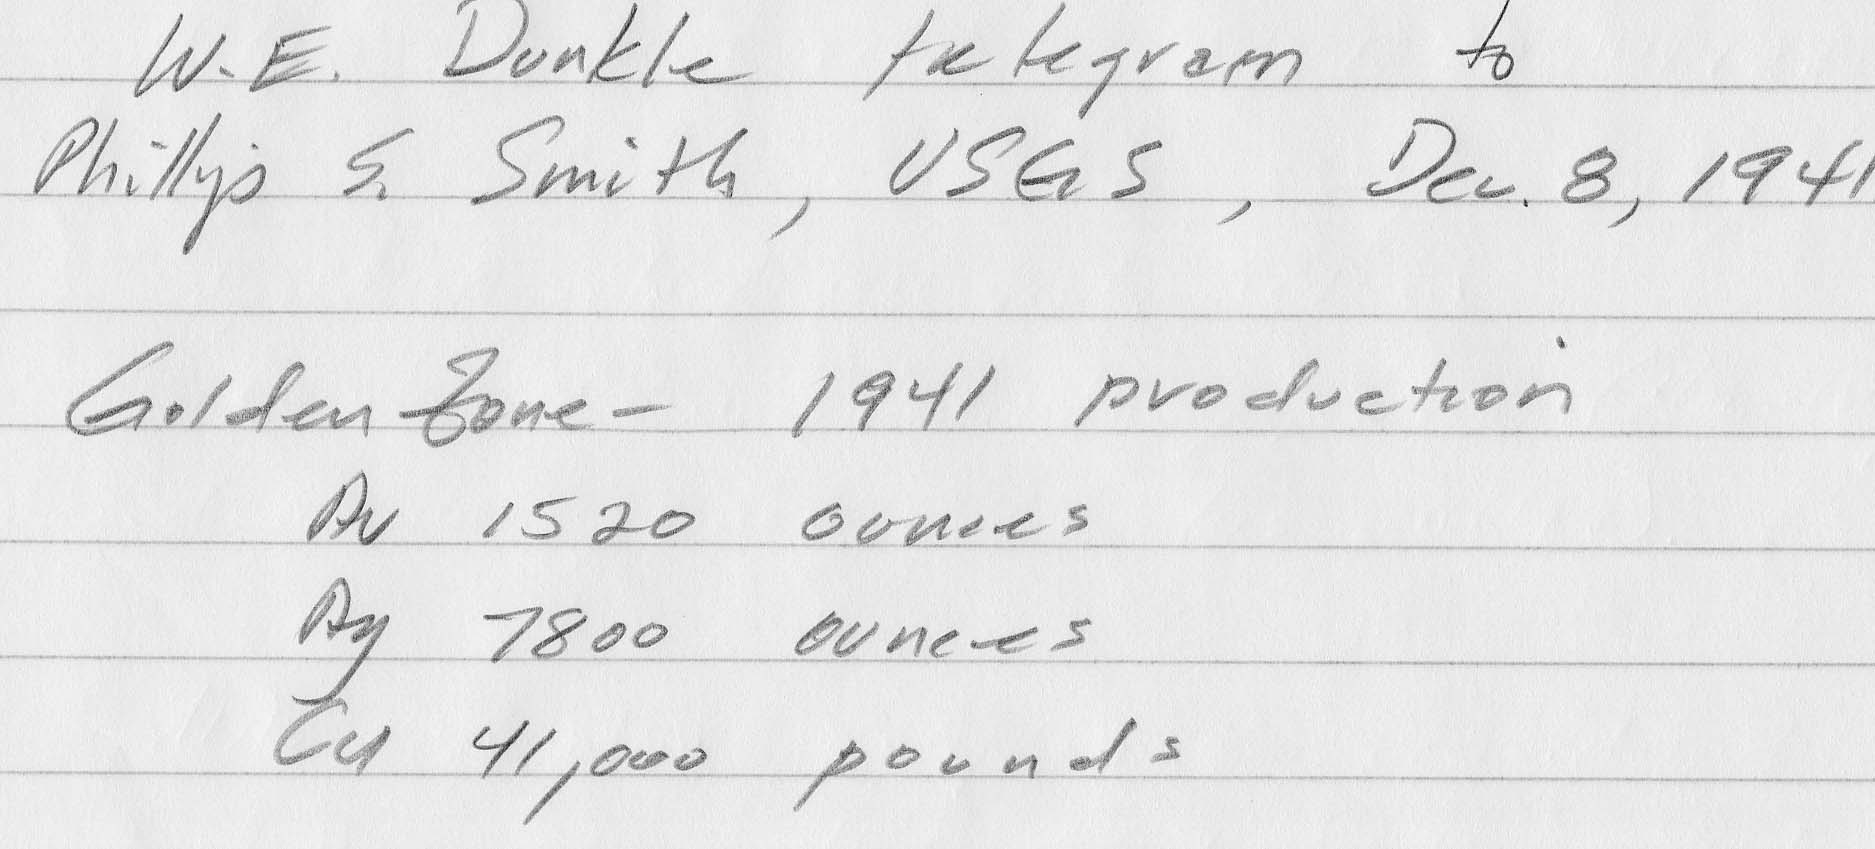 W.E. Dunkle telegram to
Phillips S. Smith, USGS, Dec. 8, 1941
Golden Zone - 1941 production
Au 1520 ounces
Ag 7800 ounces
Cu 41,000 pounds